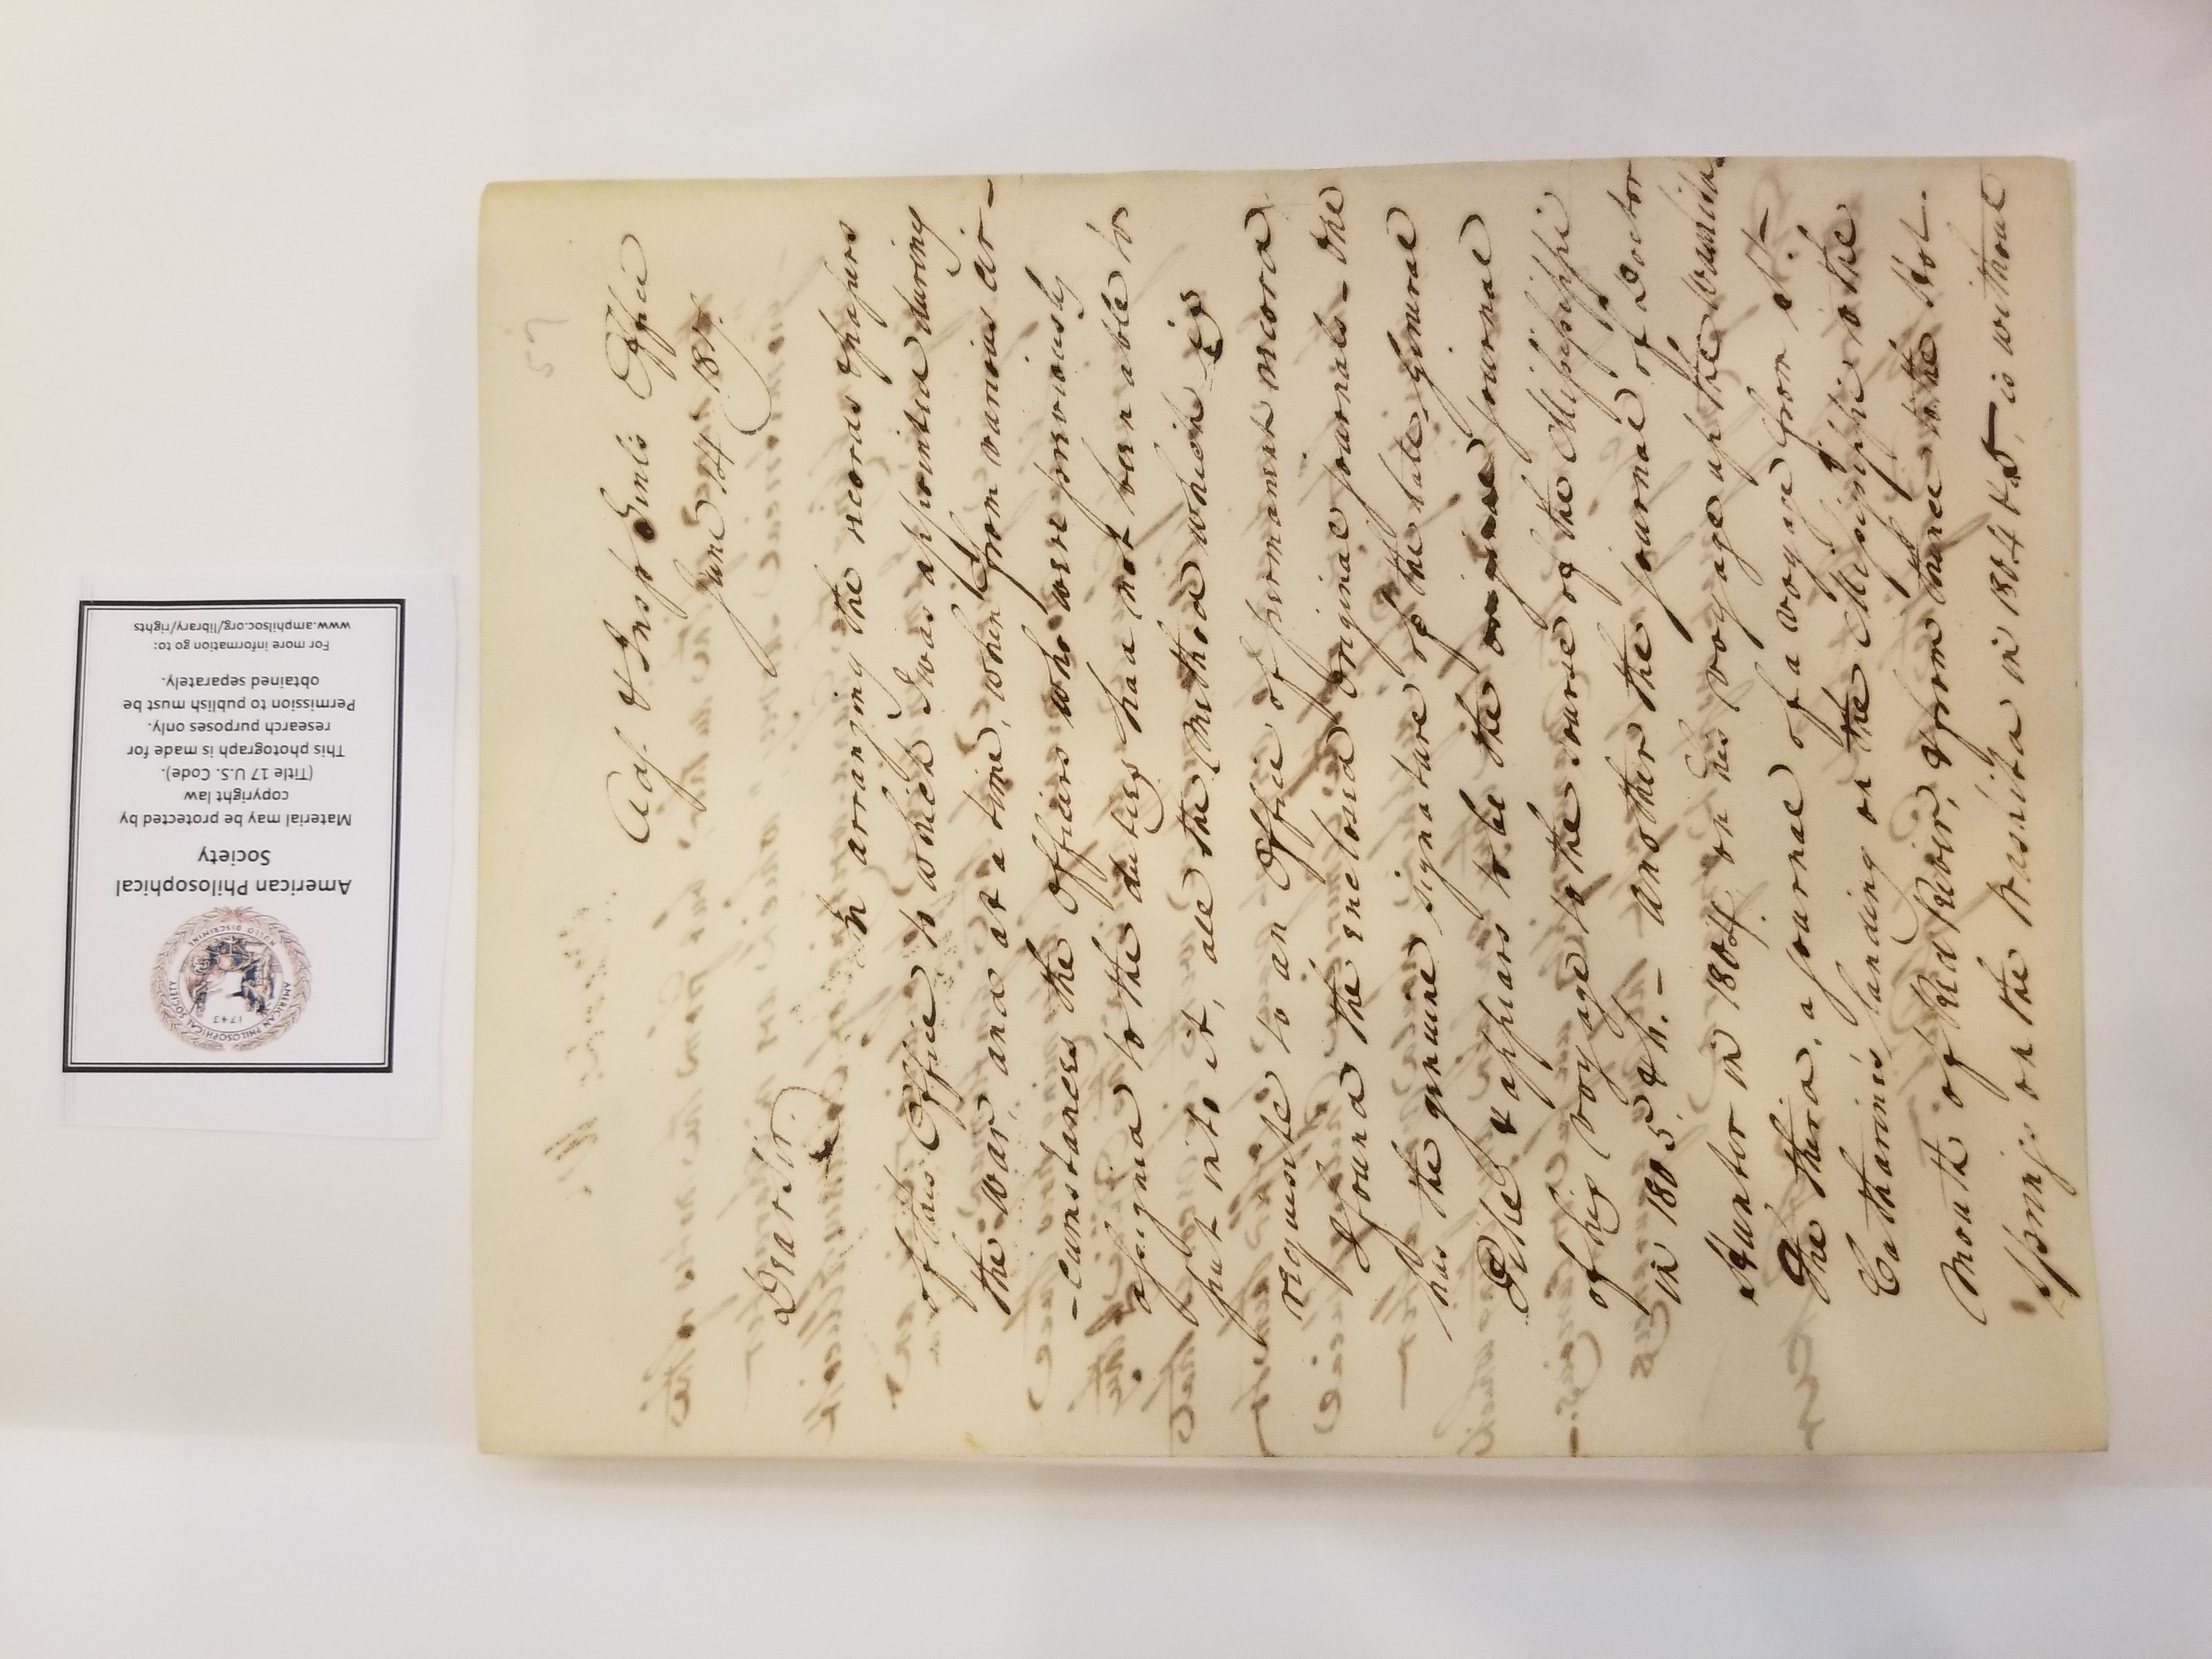 AMERICAN PHILOSOPHICAL SOCIETY
1743
American Philosophical
Society
Material may be protected by
copyright law
(Title 17 U.S. Code).
This photograph is made for
research purposes only.
Permission to publish must be
obtained separately.
For more information go to:
www.amphilsoc.org/library/rights
57
Adj. & Insp Genl's Office
June 14 1817.
Dear Sir.
In arranging the records & papers
of this Office, to which I was appointed during
the war, and at a time, when from various cir-
-cumstances the Officers who were previously
assigned to the duties had not been able to
put into it, all the method which is
requisite to an Office of permanent record
I found the enclosed original journals - One
has the genuine signature of the late General
Pike & appears to be the original journal
of his voyage to the sourse of the Missisippi
in 1805, & 6. - another the journal of Doctor
Hunter in 1804, on his voyage up the Washita.
The third, a journal of a voyage from St.
Catharine's landing on the Missisippi to the
mouth of Red River, & from thence to the Hot-
springs on the Washita in 1804 & 5, is without